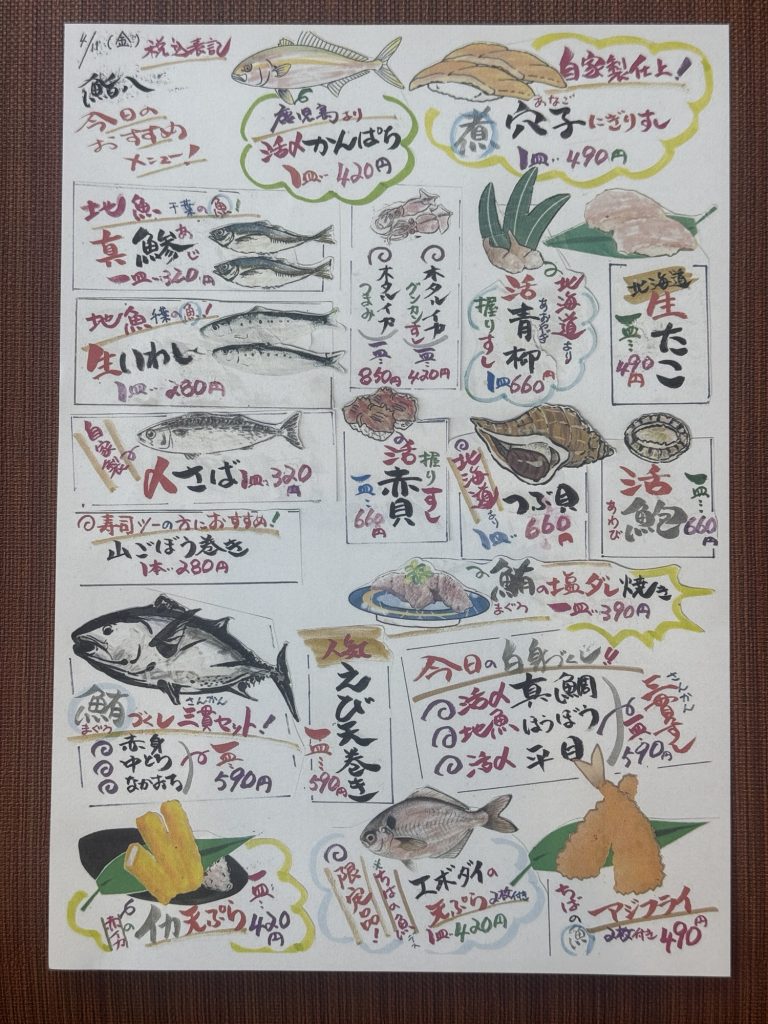 4/18(金) 税込表記
鮨八
今日の
おすすめ
メニュー!
鹿児島より
活〆かんぱち
1皿…420円
自家製仕上!
あなご
煮穴子にぎりすし
1皿…490円
地魚 千葉の魚!
真鯵
あじ
一皿…320円
地魚 千葉の魚!
生いわし
1皿…280円
自家製
〆さば 1皿…320円
◎寿司ツーの方におすすめ!
山ごぼう巻き
1本…280円
ホタルイカ
グンカンすし
一皿…420円
ホタルイカ
つまみ
一皿…850円
北海道より
活青柳
あおやぎ
握りすし
1皿660円
北海道
生たこ
一皿…490円
活赤貝
握りすし
一皿…660円
北海道より
つぶ貝
1皿…660円
活鮑
あわび
一皿…660円
鮪の塩ダレ焼き
まぐろ
一皿…390円
鮪づくし三貫セット!
まぐろ さんかん
赤身
中とろ
なかおち
一皿…590円
人気
えび天巻き
一皿…590円
今日の白身づくし!!
活〆 真鯛
地魚 ほうぼう
活〆 平目
さんかん
三貫すし
一皿…590円
イカ天ぷら
一皿…420円
限定品!
ちばの魚デス
エボダイの
天ぷら2枚付き
1皿…420円
ちばの魚
アジフライ
2枚付き 490円